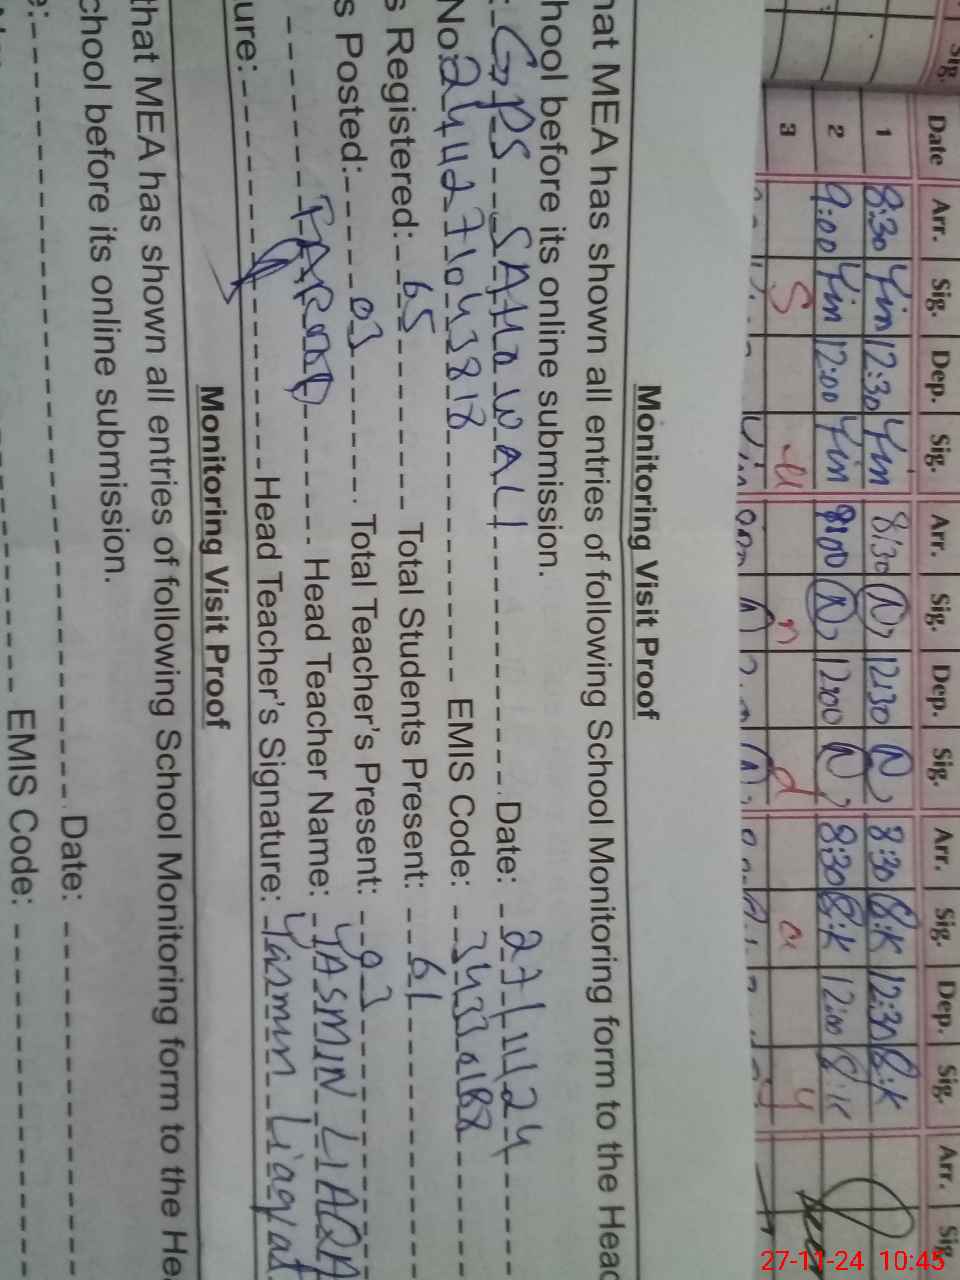 Sig.
Date Arr. Sig. Dep. Sig. Arr. Sig. Dep. Sig. Arr. Sig. Dep. Sig. Arr. Sig.
1 8:30 Yin 12:30 Yin 8:30 N 12:30 N 8:30 S.K 12:30 S.K
2 9:00 Yin 12:00 Yin 8:00 N 12:00 N 8:30 S.K 12:00 S.K
3 S u n d a y
Monitoring Visit Proof
hat MEA has shown all entries of following School Monitoring form to the Head
hool before its online submission.
: GPS SAHOWALI Date: 27/11/24
No: EMIS Code:
s Registered: 65 Total Students Present: 61
s Posted: 03 Total Teacher's Present: 03
FAROOQ Head Teacher Name: YASMIN LIAQA
ure: Head Teacher's Signature: Yasmin Liaqat
Monitoring Visit Proof
that MEA has shown all entries of following School Monitoring form to the Hea
chool before its online submission.
e: Date:
EMIS Code:
27-11-24 10:45